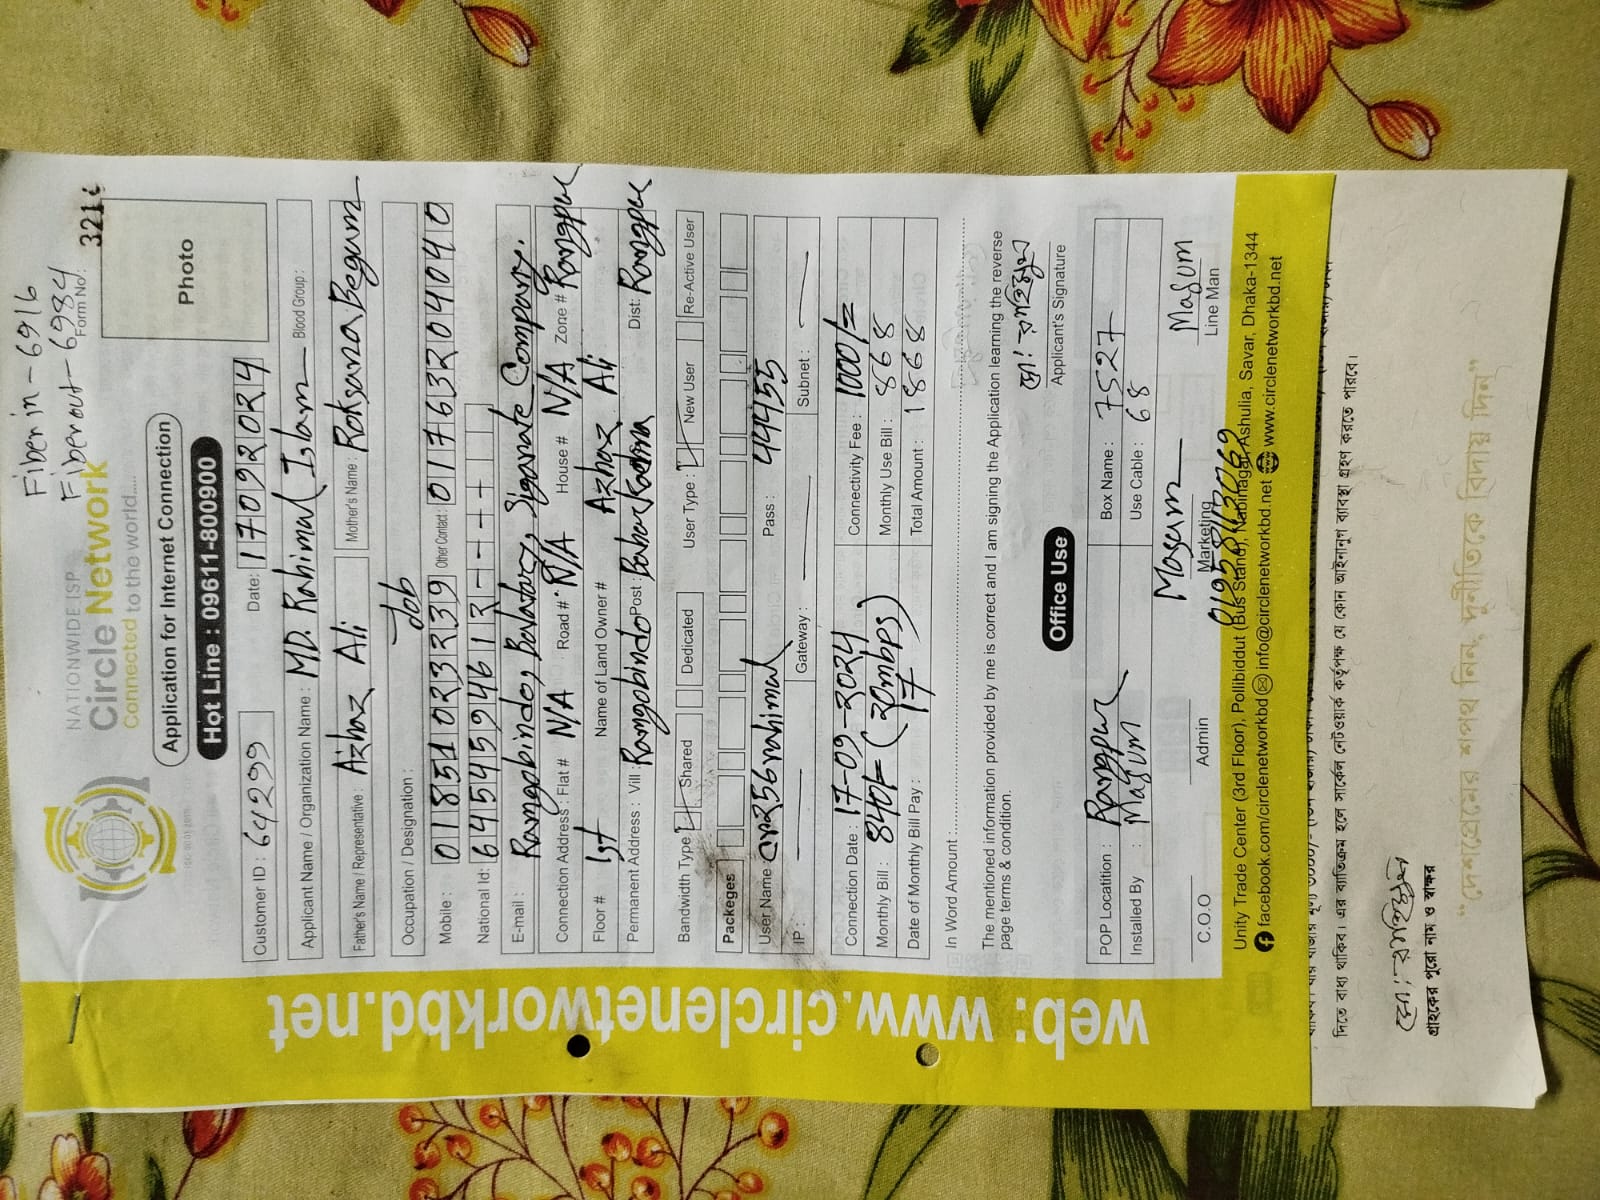 Fiber in - 6916
Fiber out - 6984
NATIONWIDE ISP
Circle Network
Connected to the world.....
Form No:
321
Application for Internet Connection
Hot Line : 09611-800900
Photo
Customer ID : 64299 Date: 17092024
Applicant Name / Organization Name : MD. Rahimul Islam Blood Group :
Father's Name / Representative : Azhar Ali Mother's Name : Roksana Begum
Occupation / Designation : Job
Mobile : 01851023239 Other Contact : 01763204040
National Id: 6454594612
E-mail : Ramgobindo, Balatari, Company.
Connection Address : Flat # N/A Road # N/A House # N/A Zone # Rangpur
Floor # 1st Name of Land Owner # Azhar Ali
Permanent Address : Vill : Ramgobindo Post : Dist: Rangpur
Bandwidth Type : Shared Dedicated User Type : New User Re-Active User
Packeges
User Name cr256rahimul Pass : 44455
IP : Gateway : Subnet :
Connection Date : 17-09-2024 Connectivity Fee : 1000/=
Monthly Bill : 840/= (20mbps) Monthly Use Bill : 868
Date of Monthly Bill Pay : 17 Total Amount : 1868
In Word Amount :
The mentioned information provided by me is correct and I am signing the Application learning the reverse
page terms & condition.
মো: রহিমুল
Applicant's Signature
Office Use
POP Locatition : Rangpur Box Name : 7527
Installed By : Masum Use Cable : 68
Masum
Masum
C.O.O Admin Marketing Line Man
01958113069
Unity Trade Center (3rd Floor), Pollibiddut (Bus Stand), Nabinagar, Ashulia, Savar, Dhaka-1344
facebook.com/circlenetworkbd info@circlenetworkbd.net www.circlenetworkbd.net
web: www.circlenetworkbd.net
দিতে বাধ্য থাকিব। এর ব্যতিক্রম হলে সার্কেল নেটওয়ার্ক কর্তৃপক্ষ যে কোন আইনানুগ ব্যবস্থা গ্রহণ করতে পারবে।
মো: রহিমুল
গ্রাহকের পুরো নাম ও স্বাক্ষর
"দেশপ্রেমের শপথ নিন, দুর্নীতিকে বিদায় দিন"